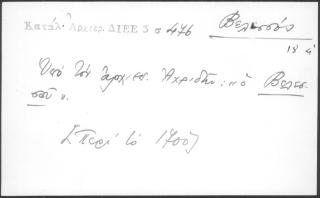 Κατάλ. Ἀρχιερ. ΔΙΕΕ 3 σ 476 Βελεσσός
18 α'
Ὑπὸ τὸν ἀρχιεπ. Ἀχριδῶν: "ὁ Βελεσ-
σοῦ".
[περὶ τὸ 1700]